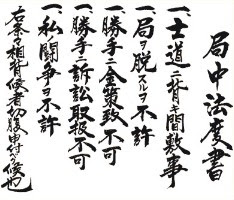 局中法度書
一、士道ニ背キ間敷事
一、局ヲ脱スルヲ不許
一、勝手ニ金策致不可
一、勝手ニ訴訟取扱不可
一、私ノ闘争ヲ不許
右条々相背候者切腹申付ベク候也